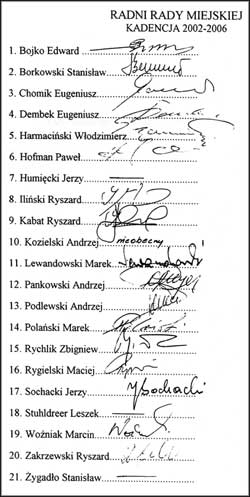 RADNI RADY MIEJSKIEJ
KADENCJA 2002-2006
1. Bojko Edward
2. Borkowski Stanisław
3. Chomik Eugeniusz
4. Dembek Eugeniusz
5. Harmaciński Włodzimierz
6. Hofman Paweł
7. Humięcki Jerzy
8. Iliński Ryszard
9. Kabat Ryszard
10. Kozielski Andrzej nieobecny
11. Lewandowski Marek
12. Pankowski Andrzej
13. Podlewski Andrzej
14. Polański Marek
15. Rychlik Zbigniew
16. Rygielski Maciej
17. Sochacki Jerzy JSochacki
18. Stuhldreer Leszek
19. Woźniak Marcin
20. Zakrzewski Ryszard
21. Żygadło Stanisław